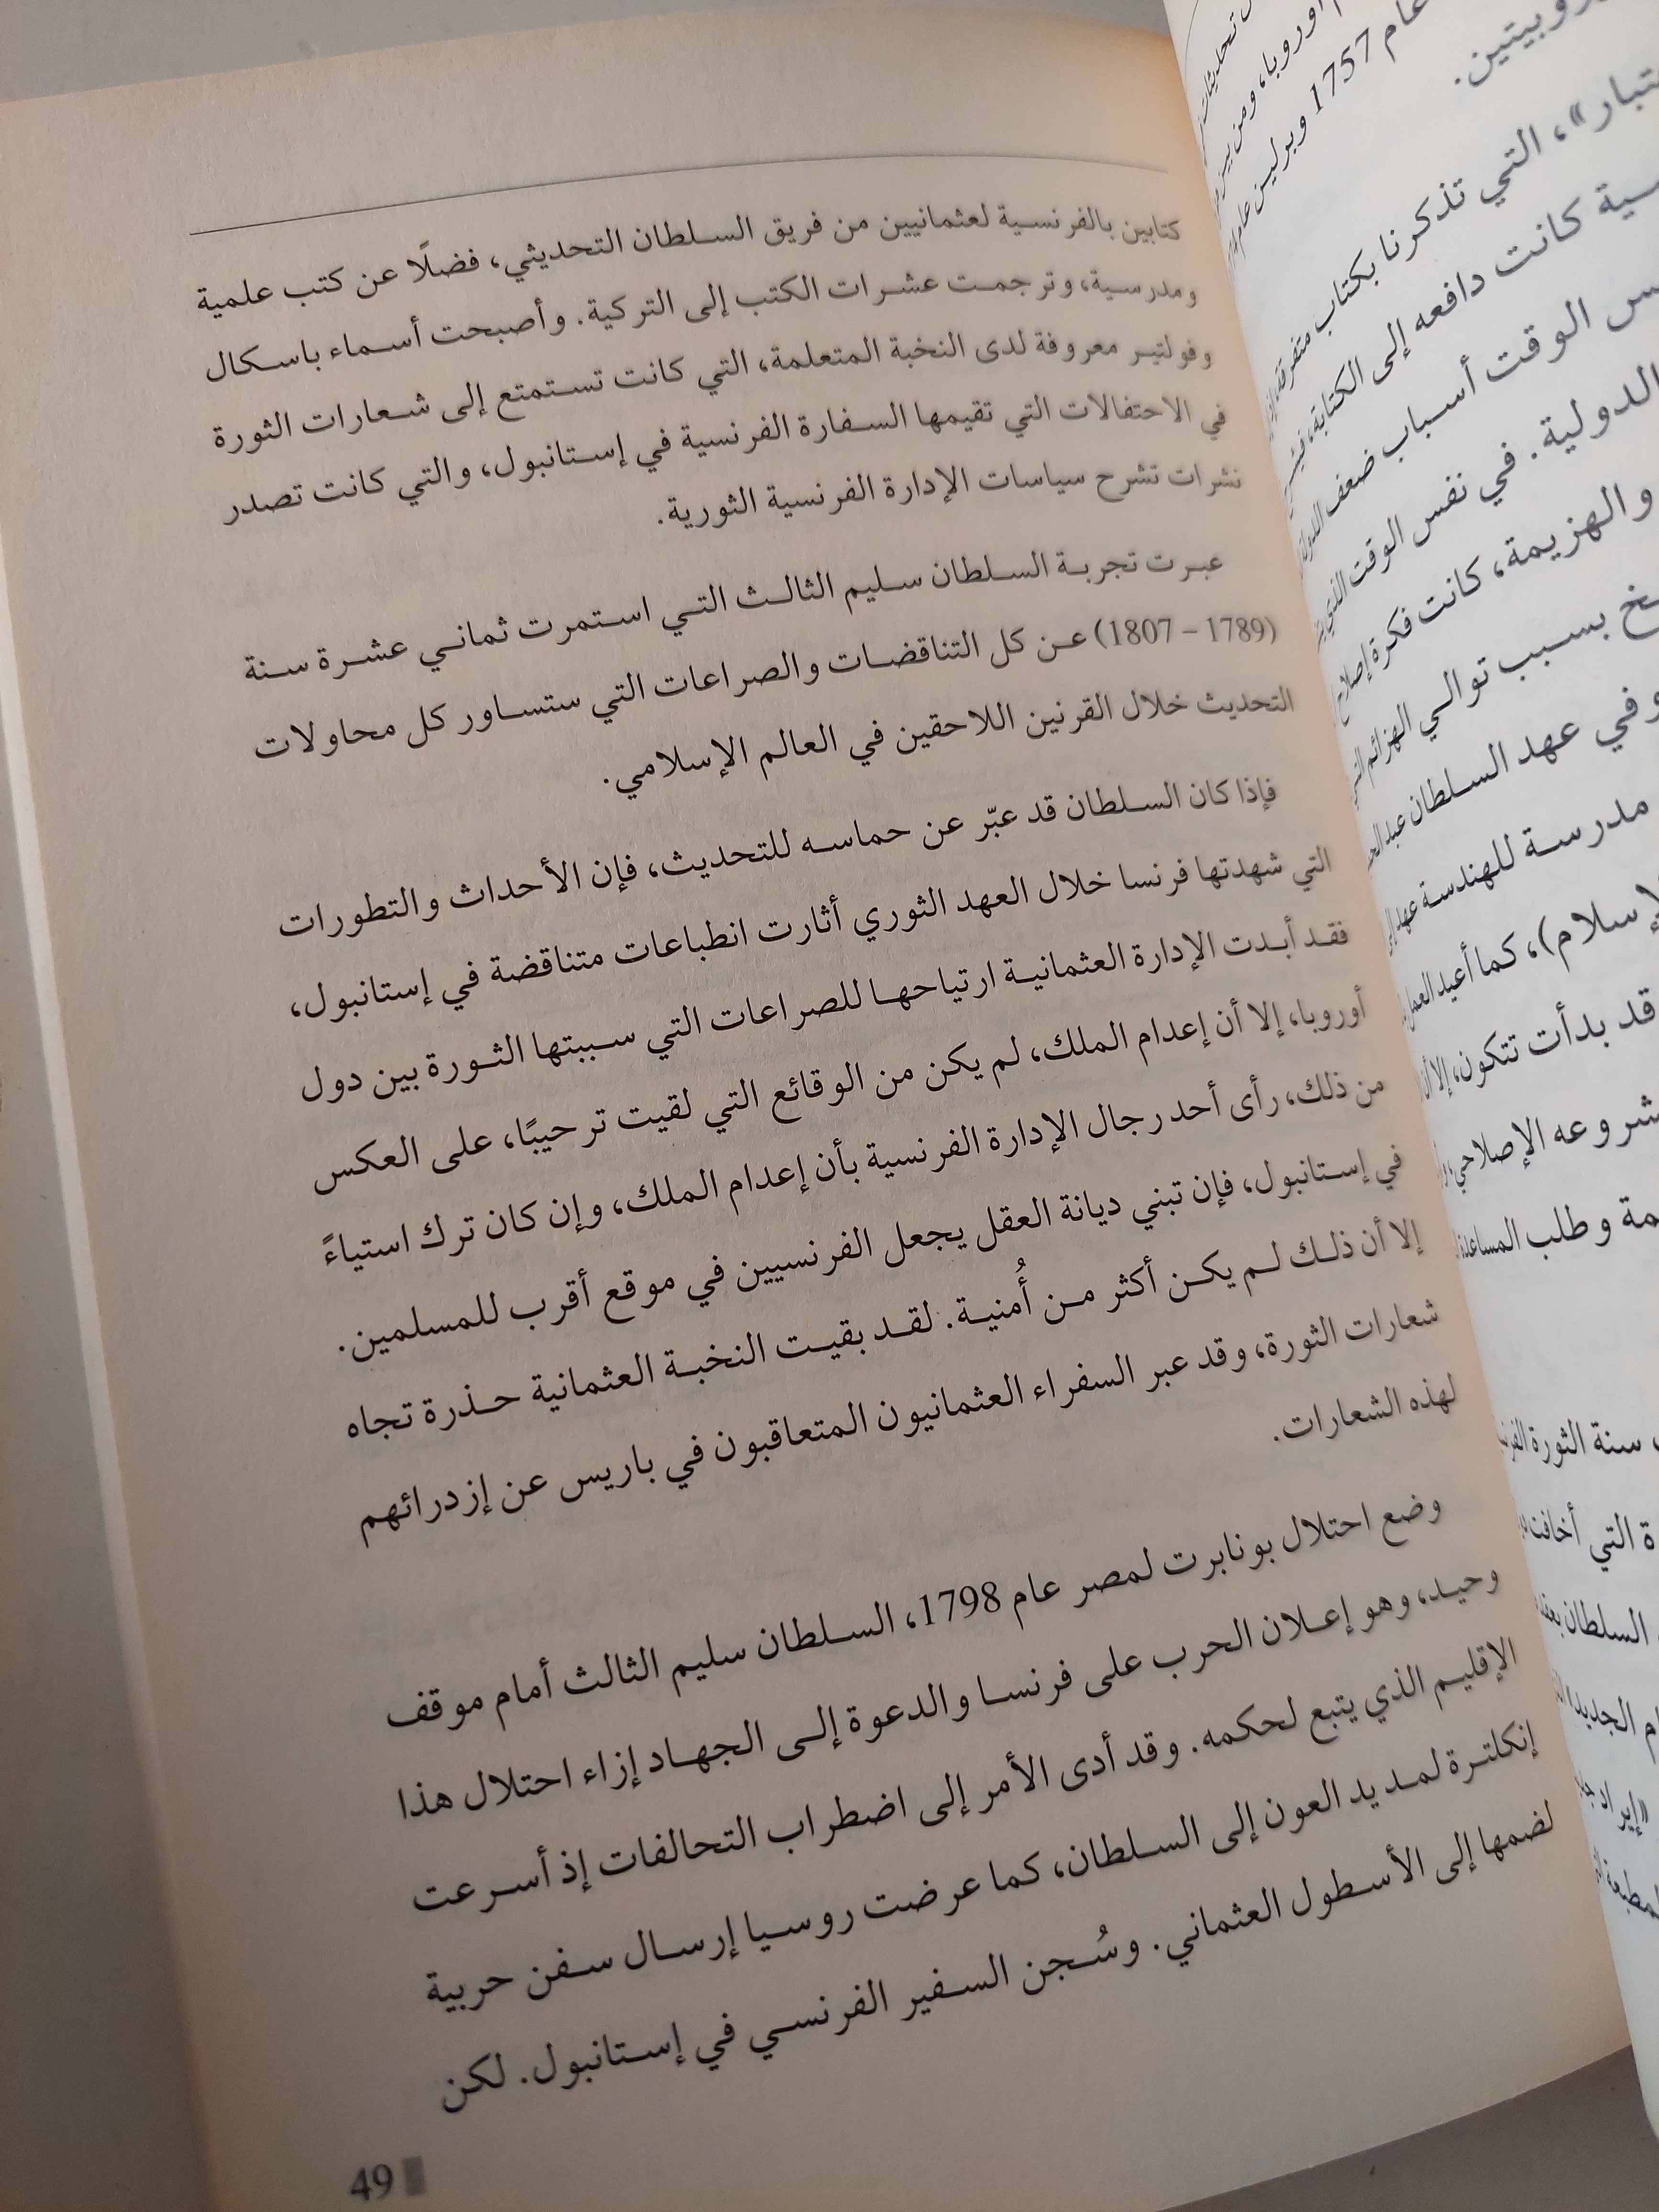 كتابين بالفرنسية لعثمانيين من فريق السلطان التحديثي، فضلًا عن كتب علمية
ومدرسية، وترجمت عشرات الكتب إلى التركية. وأصبحت أسماء باسكال
وفولتير معروفة لدى النخبة المتعلمة، التي كانت تستمتع إلى شعارات الثورة
في الاحتفالات التي تقيمها السفارة الفرنسية في إستانبول، والتي كانت تصدر
نشرات تشرح سياسات الإدارة الفرنسية الثورية.
عبرت تجربة السلطان سليم الثالث التي استمرت ثماني عشرة سنة
(1789 – 1807) عن كل التناقضات والصراعات التي ستساور كل محاولات
التحديث خلال القرنين اللاحقين في العالم الإسلامي.
فإذا كان السلطان قد عبّر عن حماسه للتحديث، فإن الأحداث والتطورات
التي شهدتها فرنسا خلال العهد الثوري أثارت انطباعات متناقضة في إستانبول،
فقد أبدت الإدارة العثمانية ارتياحها للصراعات التي سببتها الثورة بين دول
أوروبا، إلا أن إعدام الملك، لم يكن من الوقائع التي لقيت ترحيبًا، على العكس
من ذلك، رأى أحد رجال الإدارة الفرنسية بأن إعدام الملك، وإن كان ترك استياءً
في إستانبول، فإن تبني ديانة العقل يجعل الفرنسيين في موقع أقرب للمسلمين.
إلا أن ذلك لم يكن أكثر من أُمنية. لقد بقيت النخبة العثمانية حذرة تجاه
شعارات الثورة، وقد عبر السفراء العثمانيون المتعاقبون في باريس عن إزدرائهم
لهذه الشعارات.
وضع احتلال بونابرت لمصر عام 1798، السلطان سليم الثالث أمام موقف
وحيد، وهو إعلان الحرب على فرنسا والدعوة إلى الجهاد إزاء احتلال هذا
الإقليم الذي يتبع لحكمه. وقد أدى الأمر إلى اضطراب التحالفات إذ أسرعت
إنكلترة لمد يد العون إلى السلطان، كما عرضت روسيا إرسال سفن حربية
لضمها إلى الأسطول العثماني. وسُجن السفير الفرنسي في إستانبول. لكن
49
أوروبا، ومن بين
عام 1757 وبرلين عام
التي تذكرنا بكتاب متفرقة
كانت دافعه إلى الكتابة،
الوقت أسباب ضعف الدولة
الدولية. في نفس الوقت الذي
والهزيمة، كانت فكرة إصلاح
بسبب توالي الهزائم
وفي عهد السلطان
مدرسة للهندسة
كما أعيد العمل
قد بدأت تتكون، إلا أن
الإصلاحي،
وطلب المساعدة
سنة الثورة
التي أخافت
السلطان
الجديد
«إيراد